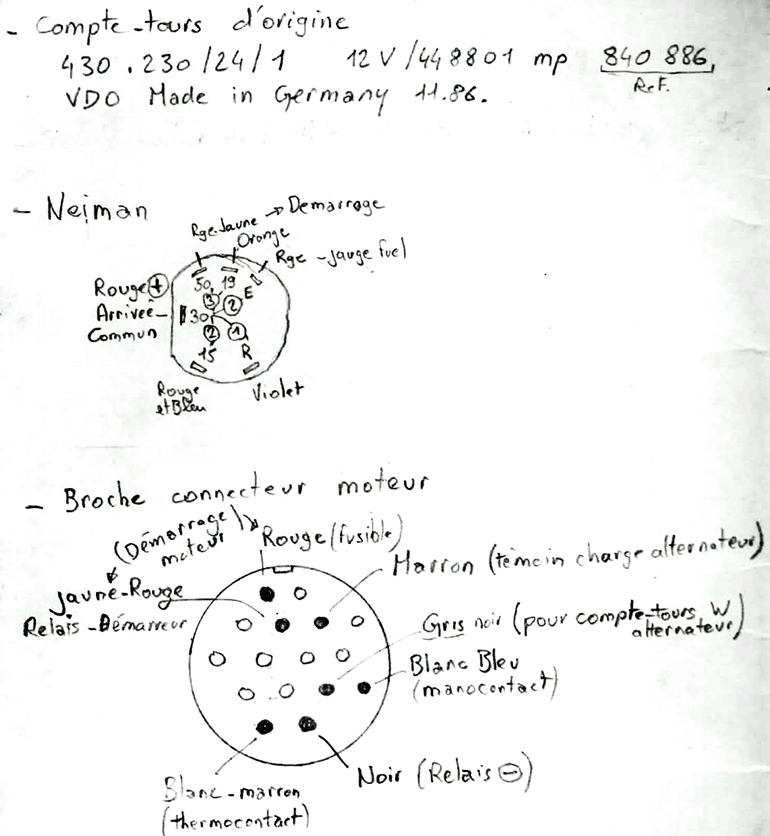 - Compte-tours d'origine
430.230/24/1 12V/448801 mp 840 886,
Ref.
VDO Made in Germany 11.86.
- Neiman
Rge-Jaune → Demarrage
Orange
Rge - jauge fuel
Rouge +
Arrivée
Commun
50 19
3 2 E
30
2 1
15 R
Rouge
et Bleu
Violet
- Broche connecteur moteur
(Démarrage
moteur)
Rouge (fusible)
Marron (témoin charge alternateur)
Jaune-Rouge
Relais-Démarreur
Gris noir (pour compte-tours W
alternateur)
Blanc Bleu
(manocontact)
Noir (Relais -)
Blanc-marron
(thermocontact)